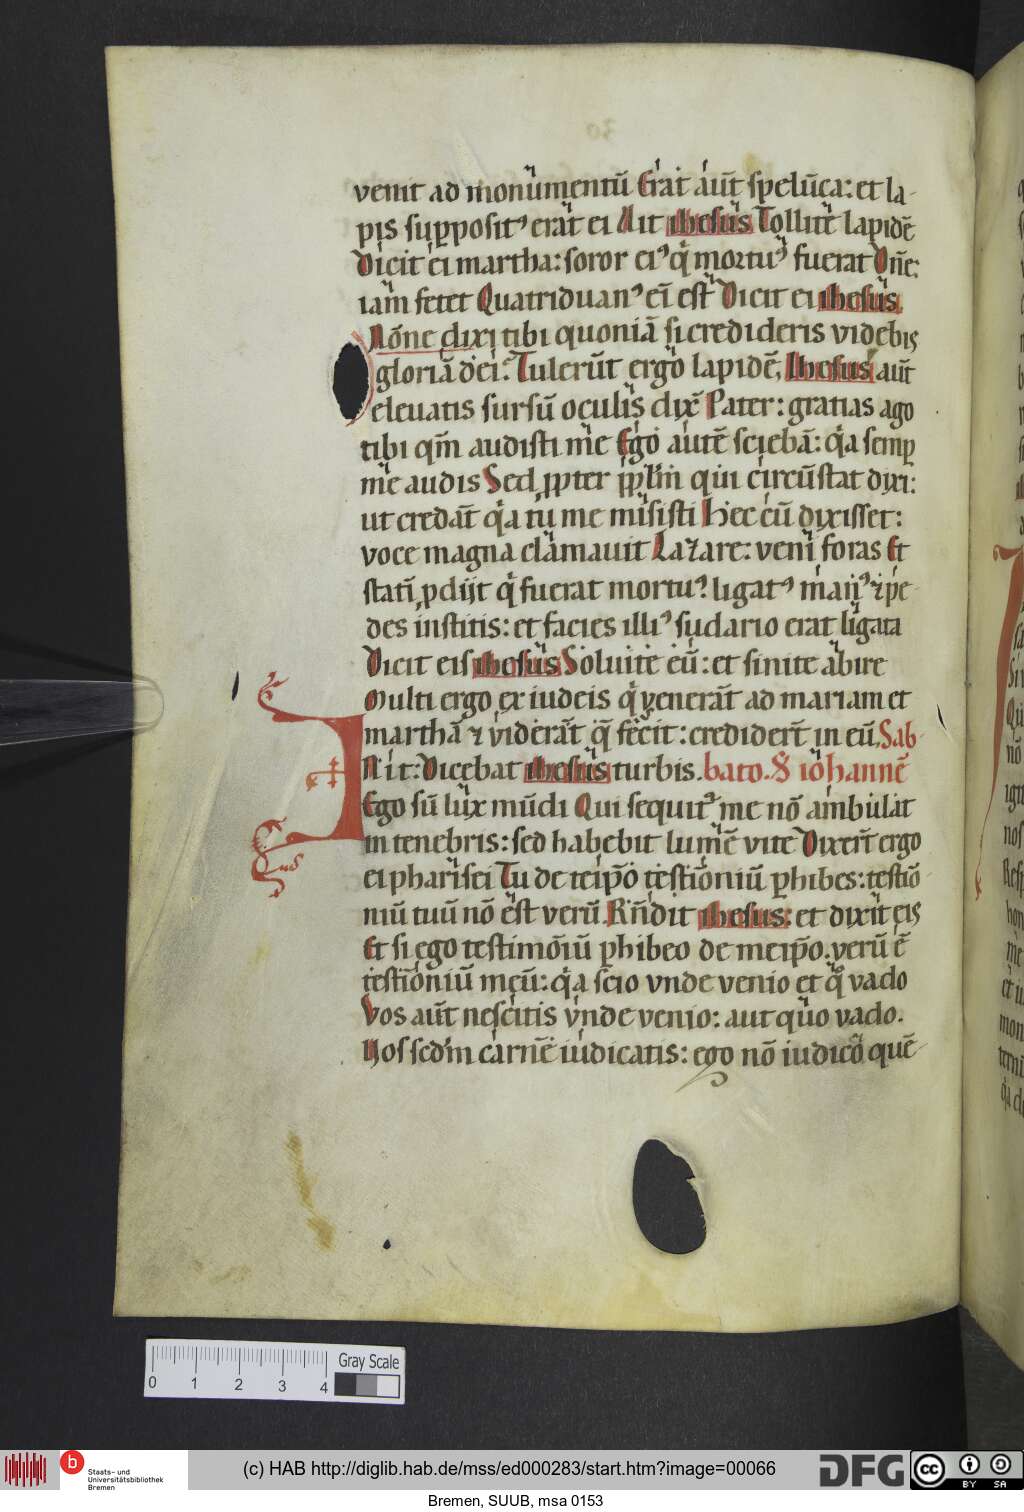 venit ad monumentū Erat aut̄ spelūca: et la-
pis supposit᷒ erat ei Ait ihesus Tollite lapidē
Dicit ei martha: soror ei᷒ q̇ mortu᷒ fuerat Dn̄e:
iam fetet Quatriduan᷒ ei͞ est Dicit ei ihesus.
Nōne dixi tibi quoniā si credideris videbis
gloriā dei. Tulerūt ergo lapidē. Ihesus aut̄
eleuatis sursū oculis dix̄ Pater: gratias ago
tibi qm̄ audisti me Ego autē sciebā: q̇a semp
me audis Sed ꝓpter ppl̄m qui circūstat dixi:
ut credāt q̇a tu me misisti Hec cū dixisset:
voce magna clamauit Lazare: veni foras Et
stati͞ ꝓdijt q̇ fuerat mortu᷒. ligat᷒ man᷒ ⁊ pe-
des institis: et facies illi᷒ sudario erat ligata
Dicit eis ihesus Soluite eū: et sinite abire
Multi ergo ex iudeis q̇ venerāt ad mariam et
marthā ⁊ viderāt q̄ fecit: credider̄t in eū. Sab-
In it: Dicebat ihesus turbis. bato. S iohannē
Ego sū lux mūdi Qui sequit᷑ me nō ambulat
in tenebris: sed habebit lumē vite Dixer̄t ergo
ei pharisei Tu de teip̄o testioniū ꝑhibes: testiō
niū tuū nō est verū Rn̄dit ihesus: et dixit eis
Et si ego testimōiū ꝑhibeo de meip̄o. verū ē
testioniū meū: q̇a scio vnde venio et q̊ vado
Vos aut̄ nescitis vnde venio: aut quo vado.
Vos scd̄m carnē iudicatis: ego nō iudico quē-
0 1 2 3 4
Gray Scale
b
Staats- und
Universitätsbibliothek
Bremen
(c) HAB http://diglib.hab.de/mss/ed000283/start.htm?image=00066
DFG
cc BY SA
Bremen, SUUB, msa 0153